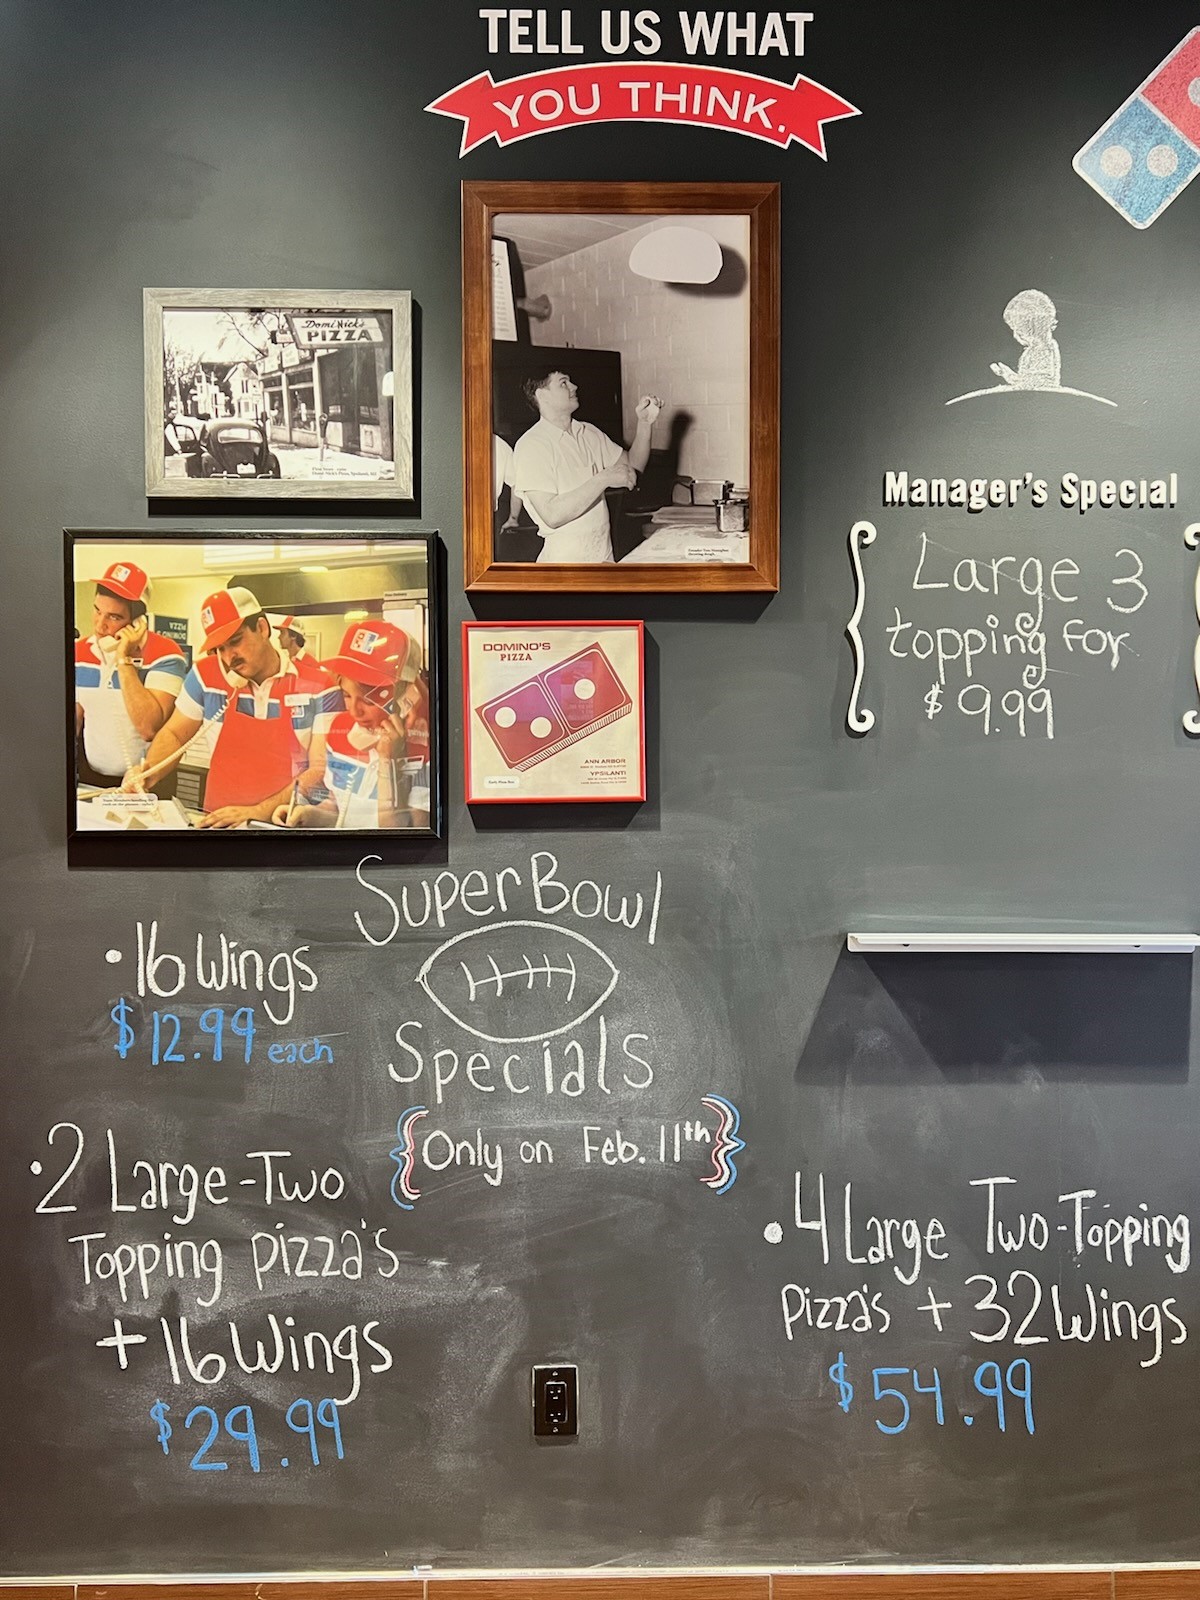 TELL US WHAT
YOU THINK.
Domi Nick's
PIZZA
DOMINO'S
PIZZA
ANN ARBOR
YPSILANTI
Early Pizza Box
Manager's Special
Large 3
topping for
$9.99
Super Bowl
Specials
{Only on Feb. 11th}
• 16 Wings
$12.99 each
• 2 Large-Two
Topping pizza's
+ 16 Wings
$29.99
• 4 Large Two-Topping
pizza's + 32 Wings
$54.99